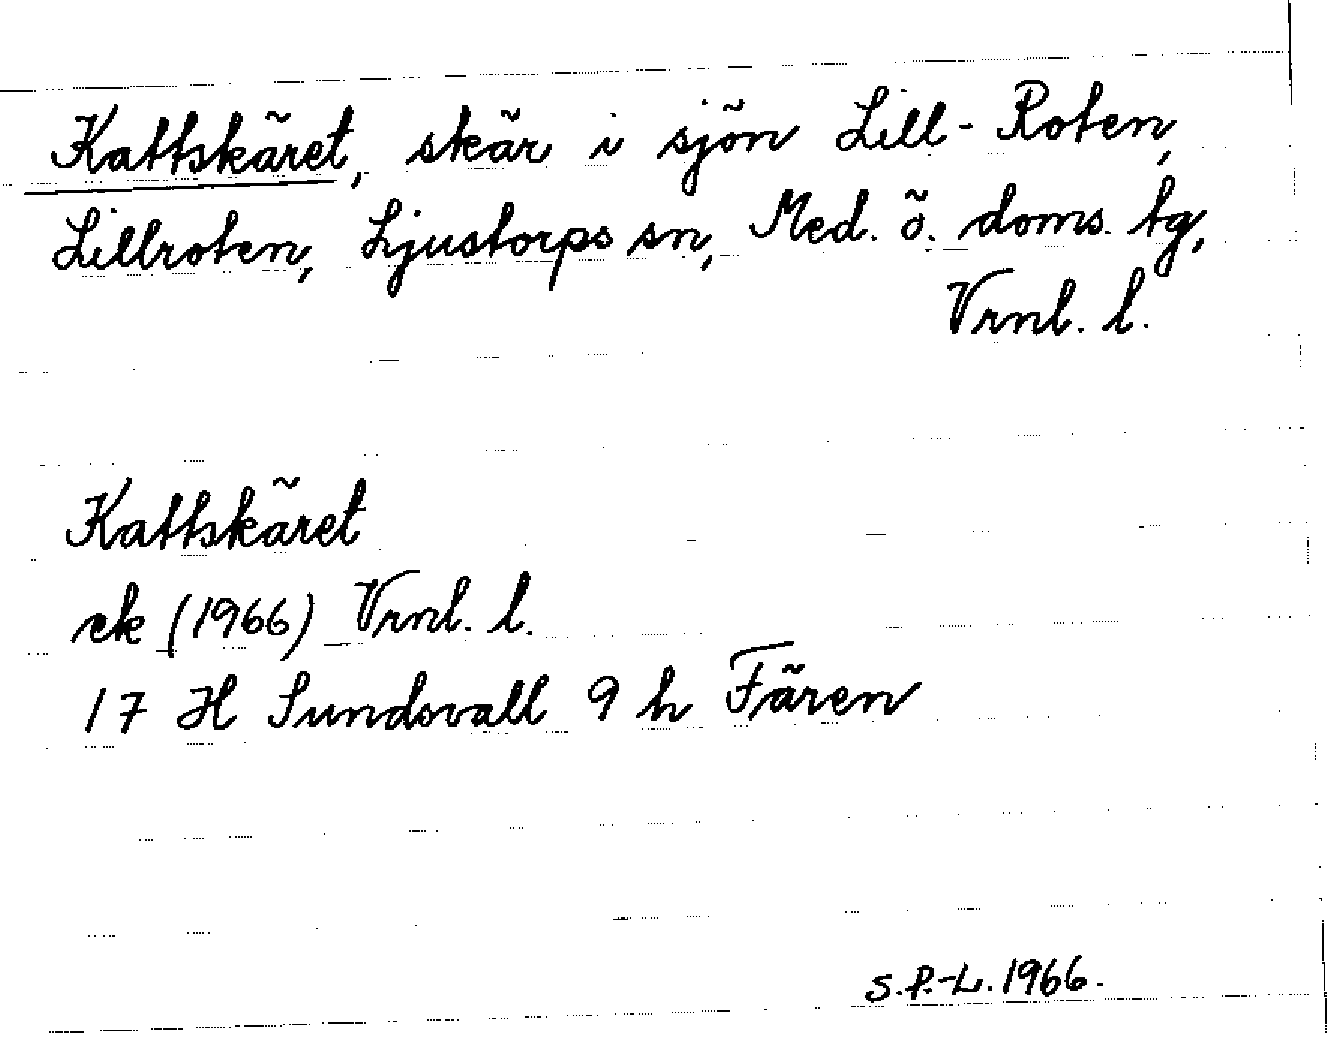 Kattskäret, skär i sjön Lill-Roten,
Lillroten, Ljustorps sn, Med. ö. doms. tg,
Vrnl. l.
Kattskäret
ek (1966) Vrnl. l.
17 H Sundsvall 9 h Fären
S.P.-L. 1966.